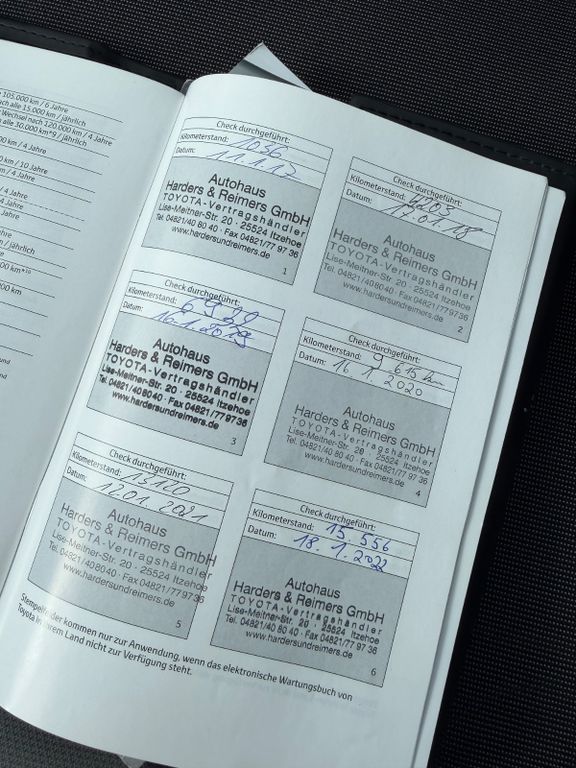 105.000 km / 6 Jahre
ach alle 15.000 km / jährlich
Wechsel nach 120.000 km / 4 Jahre
alle 30.000 km*9 / jährlich
km / 4 Jahre
00 km / 10 Jahre
km / 4 Jahre
/ 4 Jahre
/ 4 Jahre
4 Jahre
/ jährlich
000 km*10
000 km
und
und
Check durchgeführt:
Kilometerstand: 1036
Datum: 11.1.17
Autohaus
Harders & Reimers GmbH
TOYOTA-Vertragshändler
Lise-Meitner-Str. 20 · 25524 Itzehoe
Tel. 04821/40 80 40 · Fax 04821/77 97 36
www.hardersundreimers.de
1
Check durchgeführt:
Kilometerstand:
Datum: 17.01.18
Autohaus
Harders & Reimers GmbH
TOYOTA-Vertragshändler
Lise-Meitner-Str. 20 · 25524 Itzehoe
Tel. 04821/40 80 40 · Fax 04821/779736
www.hardersundreimers.de
2
Check durchgeführt:
Kilometerstand:
Datum: 16.1.2019
Autohaus
Harders & Reimers GmbH
TOYOTA-Vertragshändler
Lise-Meitner-Str. 20 · 25524 Itzehoe
Tel. 04821/408040 · Fax 04821/779736
www.hardersundreimers.de
3
Check durchgeführt:
Kilometerstand: 9 615 km
Datum: 16.1.2020
Autohaus
Harders & Reimers GmbH
TOYOTA-Vertragshändler
Lise-Meitner-Str. 20 · 25524 Itzehoe
Tel. 04821/40 80 40 · Fax 04821/77 97 36
www.hardersundreimers.de
4
Check durchgeführt:
Kilometerstand: 13120
Datum: 12.01.2021
Autohaus
Harders & Reimers GmbH
TOYOTA-Vertragshändler
Lise-Meitner-Str. 20 · 25524 Itzehoe
Tel. 04821/40 80 40 · Fax 04821/779736
www.hardersundreimers.de
5
Check durchgeführt:
Kilometerstand: 15.556
Datum: 18.1.2022
Autohaus
Harders & Reimers GmbH
TOYOTA-Vertragshändler
Lise-Meitner-Str. 20 · 25524 Itzehoe
Tel. 04821/40 80 40 · Fax 04821/77 97 36
www.hardersundreimers.de
6
Stempelfelder kommen nur zur Anwendung, wenn das elektronische Wartungsbuch von
Toyota in Ihrem Land nicht zur Verfügung steht.